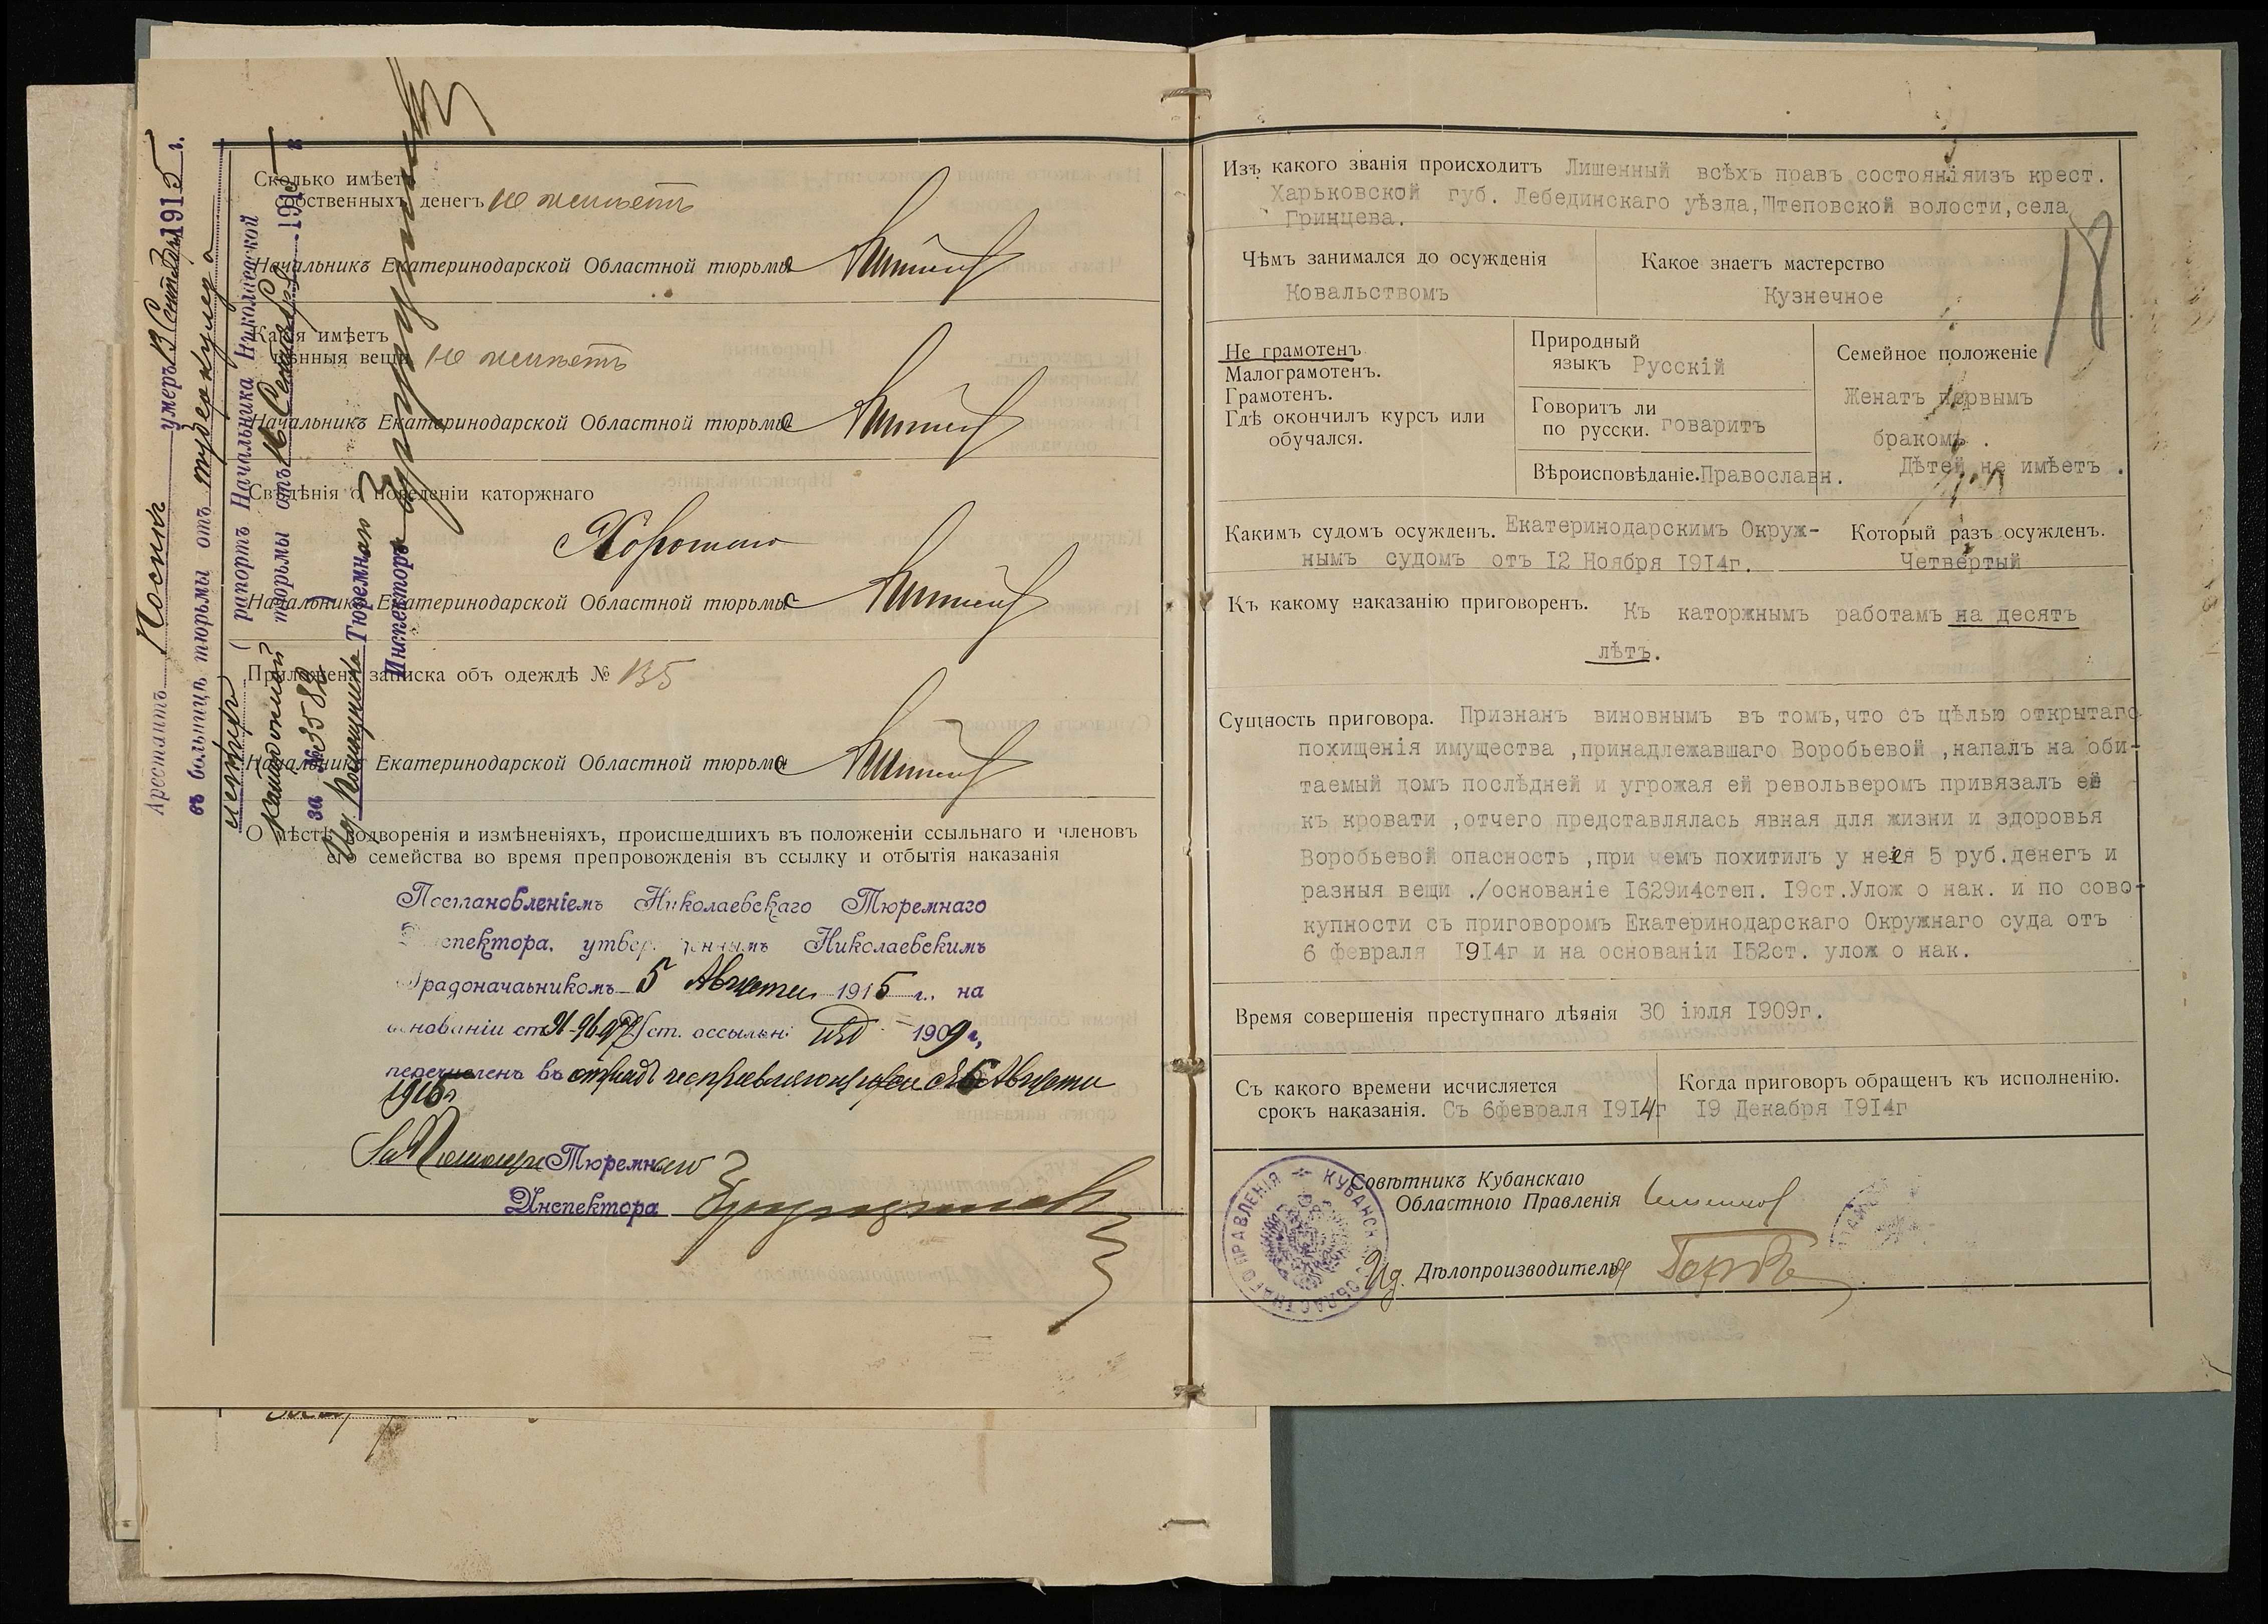 Сколько имѣетъ
собственныхъ денегъ не имѣетъ
Начальникъ Екатеринодарской Областной тюрьмы
Какія имѣетъ
цѣнныя вещи не имѣетъ
Начальникъ Екатеринодарской Областной тюрьмы
Свѣдѣнія о поведеніи каторжнаго
Хорошаго
Начальникъ Екатеринодарской Областной тюрьмы
Приложена записка объ одеждѣ № 135
Начальникъ Екатеринодарской Областной тюрьмы
О мѣстѣ водворенія и измѣненіяхъ, происшедшихъ въ положеніи ссыльнаго и членовъ
его семейства во время препровожденія въ ссылку и отбытія наказанія
Постановленіемъ Николаевскаго Тюремнаго
Инспектора, утвержденнымъ Николаевскимъ
Градоначальникомъ 5 Августа 1915 г., на
основаніи ст. уст. о ссыльн. изд 1909 г,
перечисленъ въ отрядъ исправляющихся съ 5 Августа
1915 г
За Помощн Тюремнаго
Инспектора
Арестантъ умеръ 13 Сентября 1915 г.
въ больницѣ тюрьмы отъ туберкулеза
легкихъ ( рапортъ Начальника Николаевской
каторжной тюрьмы отъ 16 Сентября 1915 г
за № 3582 )
Ид. Помощника Тюремнаго
Инспектора
Изъ какого званія происходитъ Лишенный всѣхъ правъ состояніяизъ крест.
Харьковской губ. Лебединскаго уѣзда, Штеповской волости, села
Гринцева.
18
Чѣмъ занимался до осужденія
Ковальствомъ
Какое знаетъ мастерство
Кузнечное
Не грамотенъ
Малограмотенъ.
Грамотенъ.
Гдѣ окончилъ курсъ или
обучался.
Природный
языкъ Русскій
Говоритъ ли
по русски. говаритъ
Вѣроисповѣданіе. Православн.
Семейное положеніе
Женатъ первымъ
бракомъ .
Дѣтей не имѣетъ .
Какимъ судомъ осужденъ. Екатеринодарскимъ Окруж-
нымъ судомъ отъ 12 Ноября 1914г.
Который разъ осужденъ.
Четвертый
Къ какому наказанію приговоренъ. Къ каторжнымъ работамъ на десять
лѣтъ.
Сущность приговора. Признанъ виновнымъ въ томъ, что съ цѣлью открытаго
похищенія имущества ,принадлежавшаго Воробьевой ,напалъ на оби-
таемый домъ послѣдней и угрожая ей револьверомъ привязалъ её
къ кровати ,отчего представлялась явная для жизни и здоровья
Воробьевой опасность ,при чемъ похитилъ у нея 5 руб.денегъ и
разныя вещи ./основаніе 1629и4степ. 19ст.Улож о нак. и по сово-
купности съ приговоромъ Екатеринодарскаго Окружнаго суда отъ
6 февраля 1914г и на основаніи 152ст. улож о нак.
Время совершенія преступнаго дѣянія 30 іюля 1909г.
Съ какого времени исчисляется
срокъ наказанія. Съ 6февраля 1914г
Когда приговоръ обращенъ къ исполненію.
19 Декабря 1914г
Совѣтникъ Кубанскаго
Областного Правленія
Ид. Дѣлопроизводителя
КУБАНСК ОБЛАСТНАГО ПРАВЛЕНІЯ